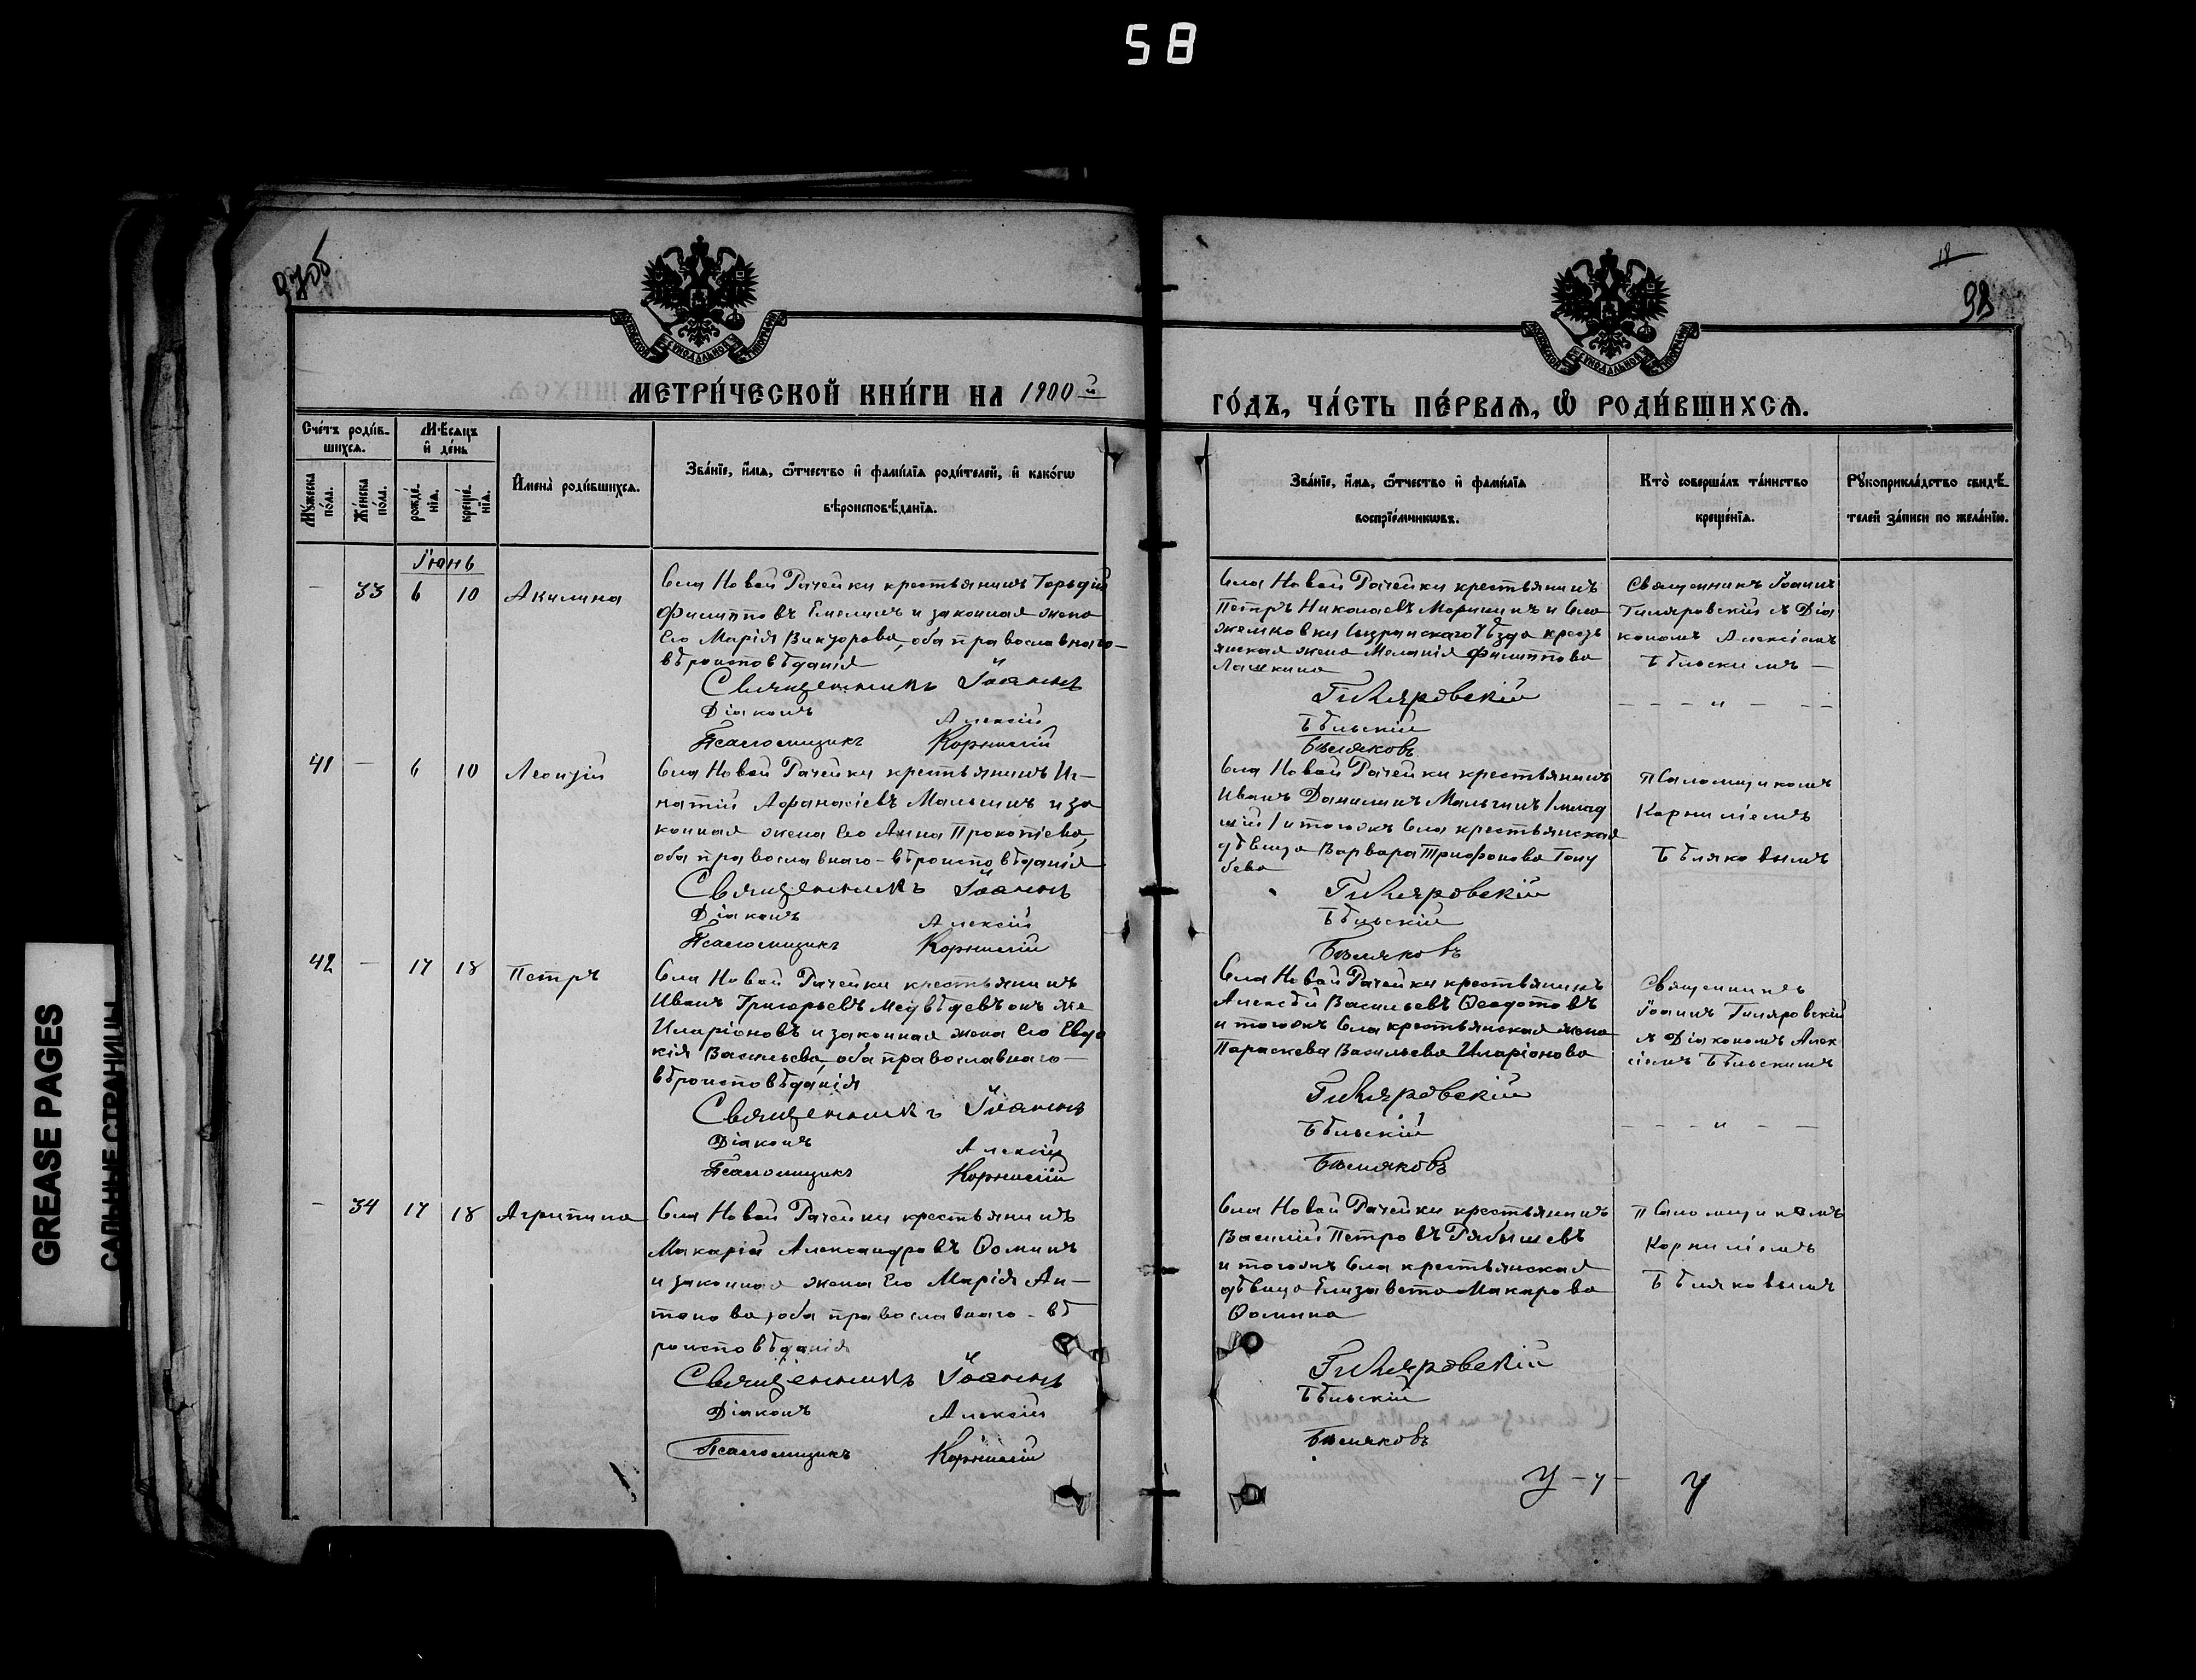 58
97об
18
98
МЕТРИ́ЧЕСКОЙ КНИ́ГИ НА 1900й
ГО́ДЪ, ЧА́СТЬ ПЕ́РВАЯ, Ѽ РОДИ́ВШИХСЯ.
Сче́тъ роди́в-
шихся.
Мѣ́сяцъ
и҆ де́нь
Мꙋ́жеска по́ла.
Же́нска по́ла.
рожде́-
нїѧ.
креще́-
нїѧ.
И҆мена̀ роди́вшихсѧ.
Зва́нїе, и҆́мѧ, ѻ҆́тчество и҆ фами́лїѧ роди́телей, и҆ како́гѡ
вѣроисповѣ́данїѧ.
Зва́нїе, и҆́мѧ, ѻ҆́тчество и҆ фами́лїѧ
воспрїе́мникѡвъ.
Кто̀ соверша́лъ та́инство
креще́нїѧ.
Рꙋкоприкла́дство свидѣ́-
телей за́писи по жела́нїю.
Іюнь
— 33 6 10 Акилина
Села Новой Рачейки крестьянинъ Гордій
Филипповъ Емелинъ и законная жена
его Марія Викторова, оба православнаго-
вѣроисповѣданія
Священникъ Іоаннъ
Діаконъ Алексій
Псаломщикъ Корнилій
Села Новой Рачейки крестьянинъ
Петръ Николаевъ и Села
Сызранскаго Уѣзда кресть
янская жена Меланія Филиппова
Лашкина
Гиляровскій
Бѣльскій
Бѣляковъ
Священникъ Іоаннъ
Гиляровскій съ Діа
кономъ Алексіемъ
Бѣльскимъ —
— — — „ — — —
41 — 6 10 Леонтій
Села Новой Рачейки крестьянинъ Иг-
натій Афанасіевъ Малышъ и за
конная жена его Анна Прокопіева,
оба православнаго-вѣроисповѣданія
Священникъ Іоаннъ
Діаконъ Алексій
Псаломщикъ Корнилій
Села Новой Рачейки крестьянинъ
Иванъ Данилинъ /млад
шій/ и тогожъ Села крестьянская
дѣвица Варвара Трифонова Голу
бева
Гиляровскій
Бѣльскій
Бѣляковъ
псаломщикомъ
Корниліемъ
Бѣляковымъ
42 — 17 18 Петръ
Села Новой Рачейки крестьянинъ
Иванъ Григорьевъ Медвѣдевъ онъ же
Иларіоновъ и законная жена его Евдо
кія Васильева, оба православнаго—
вѣроисповѣданія
Священникъ Іоаннъ
Діаконъ Алексій
Псаломщикъ Корнилій
Села Новой Рачейки крестьянинъ
Алексѣй Васильевъ Ѳедотовъ
и тогожъ Села крестьянская жена
Параскева Васильева Иларіонова
Гиляровскій
Бѣльскій
Бѣляковъ
Священникъ
Іоаннъ Гиляровскій
съ Діакономъ Алек
сіемъ Бѣльскимъ
— — — „ — —
— 34 17 18 Агрипина
Села Новой Рачейки крестьянинъ
Макарій Александровъ Ѳоминъ
и законная жена его Марія Ан-
тонова, оба православнаго-вѣ
роисповѣданія
Священникъ Іоаннъ
Діаконъ Алексій
Псаломщикъ Корнилій
Села Новой Рачейки крестьянинъ
Василій Петровъ Рябышевъ
и тогожъ Села крестьянская
дѣвица Елизавета Макарова
Ѳомина
Гиляровскій
Бѣльскій
Бѣляковъ
псаломщикомъ
Корниліемъ
Бѣляковымъ
GREASE PAGES
САЛЬНЫЕ СТРАНИЦЫ